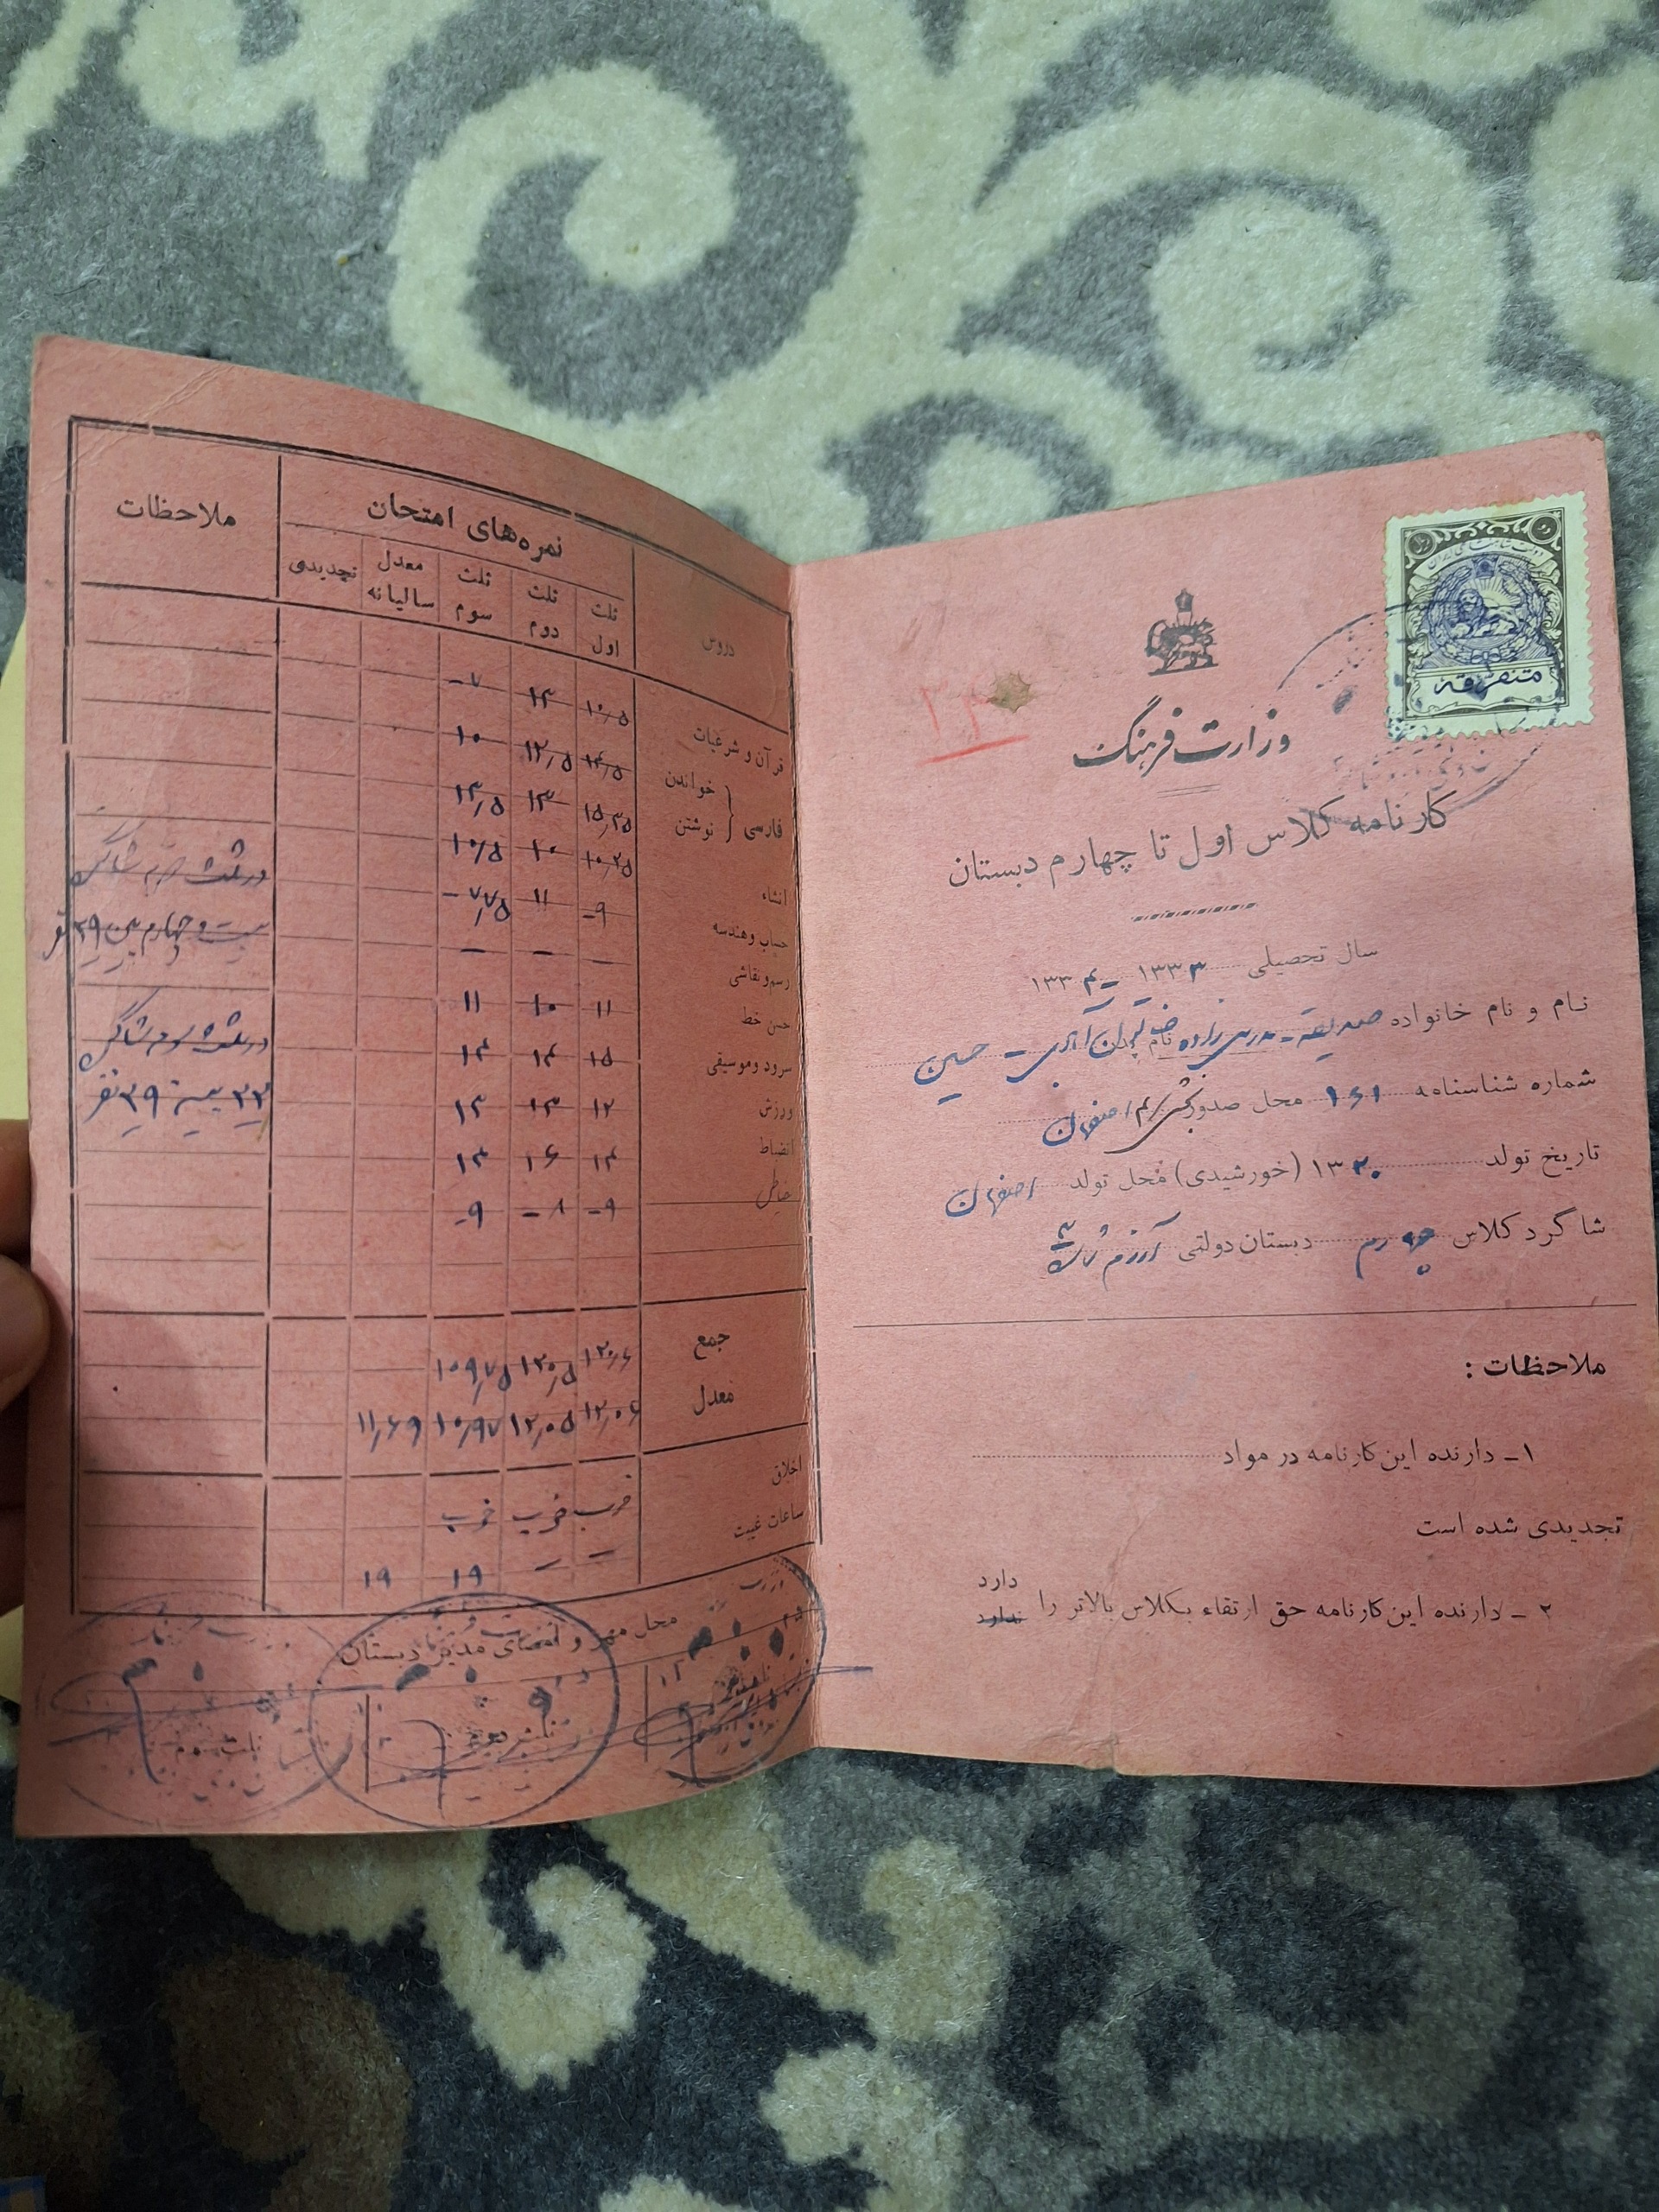 وزارت فرهنگ
کارنامه کلاس اول تا چهارم دبستان
سال تحصیلی ۱۳۳۳ - ۱۳۳۴
نام و نام خانواده صدیقه - مدرس زاده نام پدر حسین
شماره شناسنامه ۱۶۱ محل صدور بخش ۴ اصفهان
تاریخ تولد ۱۳۲۰ (خورشیدی) محل تولد اصفهان
شاگرد کلاس چهارم دبستان دولتی آزرم
ملاحظات :
۱ـ دارنده این کارنامه در مواد
تجدیدی شده است
۲ ـ دارنده این کارنامه حق ارتقاء بکلاس بالاتر را دارد ندارد
متفرقه
۲۴
دروس نمره‌های امتحان ملاحظات
ثلث اول ثلث دوم ثلث سوم معدل سالیانه تجدیدی
قرآن و شرعیات ۱۰/۵ ۱۳ ۷-
فارسی خواندن ۱۴/۵ ۱۲/۵ ۱۰
نوشتن ۱۵/۲۵ ۱۳ ۱۳/۵
انشاء ۱۰/۲۵ ۱۰ ۱۰/۵
حساب و هندسه ۹- ۱۱ ۷/۷۵-
رسم و نقاشی — — —
حسن خط ۱۱ ۱۰ ۱۱
سرود و موسیقی ۱۵ ۱۴ ۱۴
ورزش ۱۲ ۱۳ ۱۳
انضباط ۱۴ ۱۶ ۱۴
خیاطی ۹- ۸- ۹-
جمع ۱۲۰/۶ ۱۲۰/۵ ۱۰۹/۷۵
معدل ۱۲/۰۶ ۱۲/۰۵ ۱۰/۹۷ ۱۱/۶۹
اخلاق خوب خوب خوب
ساعات غیبت — — ۱۹ ۱۹
در ثلث دوم شاگرد
بیست و چهارم بین ۳۹ نفر
در ثلث سوم شاگرد
۲۲ بین ۳۹ نفر
محل مهر و امضای مدیر دبستان
ثلث دوم
ثلث سوم